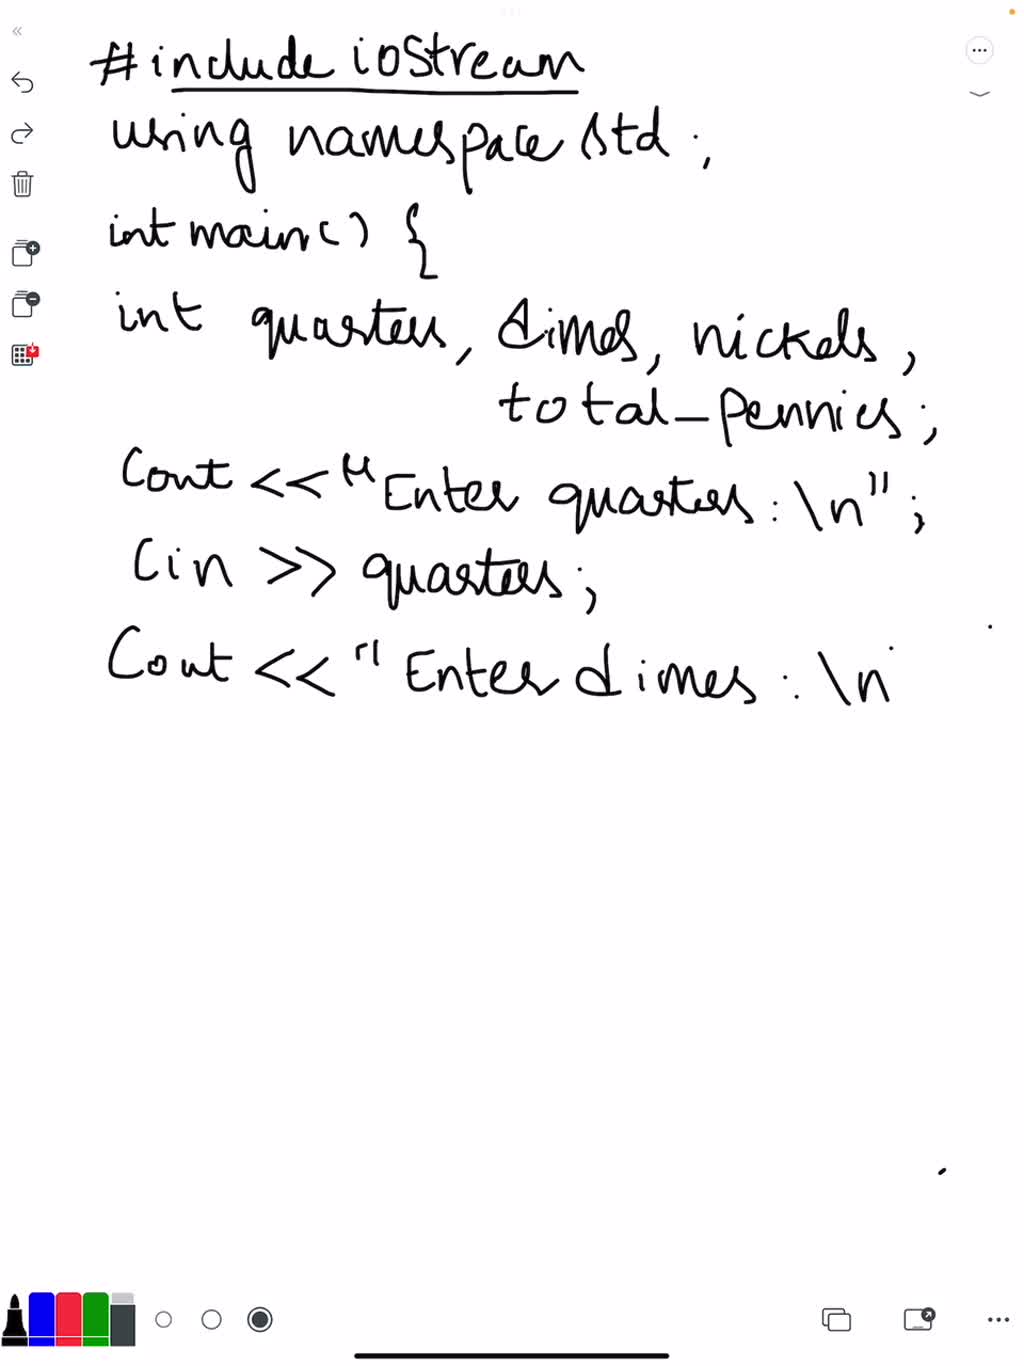 #include iostream
using namespace std ;
int main() {
int quarters, dimes, nickels,
total_pennies;
Cout << "Enter quarters : \n" ;
Cin >> quarters ;
Cout << "Enter dimes : \n